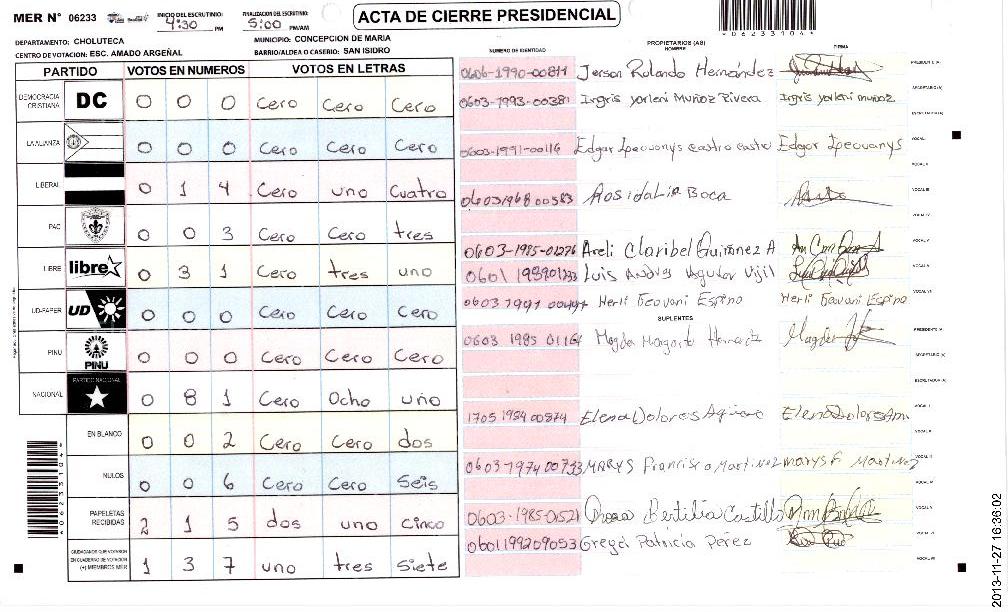 MER N° 06233 INICIO DEL ESCRUTINIO: 4:30 PM FINALIZACION DEL ESCRUTINIO: 5:00 PM/AM ACTA DE CIERRE PRESIDENCIAL
DEPARTAMENTO: CHOLUTECA MUNICIPIO: CONCEPCION DE MARIA
CENTRO DE VOTACION: ESC. AMADO ARGEÑAL BARRIO/ALDEA O CASERIO: SAN ISIDRO
PARTIDO VOTOS EN NUMEROS VOTOS EN LETRAS
DEMOCRACIA CRISTIANA DC 0 0 0 Cero Cero Cero
LA ALIANZA 0 0 0 Cero Cero Cero
LIBERAL 0 1 4 Cero uno Cuatro
PAC 0 0 3 Cero Cero tres
LIBRE libre 0 3 1 Cero tres uno
UD-FAPER UD 0 0 0 Cero Cero Cero
PINU PINU 0 0 0 Cero Cero Cero
NACIONAL PARTIDO NACIONAL 0 8 1 Cero Ocho uno
EN BLANCO 0 0 2 Cero Cero dos
NULOS 0 0 6 Cero Cero Seis
PAPELETAS RECIBIDAS 2 1 5 dos uno Cinco
CIUDADANOS QUE VOTARON EN CUADERNO DE VOTACION (+) MIEMBROS MER 1 3 7 uno tres Siete
NUMERO DE IDENTIDAD PROPIETARIOS (AS) NOMBRE FIRMA
Jerson Rolando Hernández PRESIDENTE (A)
0603-1993-00381 Ingris yorleni Muñoz Rivera Ingris yorleni muñoz SECRETARIO (A)
ESCRUTADOR (A)
0603-1991-00116 Edgar Ipecuanys Castro Castro Edgar Ipecuanys VOCAL
0603 1968 00583 Rosidalia Boca
0603-1985-01276 Areli Claribel A
Luis Vijil
Herli Geovani Espino Herli Geovani Espino
SUPLENTES
0603 1985 Magda Magda PRESIDENTE (A)
SECRETARIO (A)
ESCRUTADOR (A)
1705 1954 00874 Elena Dolores Elena Dolores
0603-1974 00733 MARYS Francisca Martinez Marys F Martinez
0603-1985-01521 Bertilia Castillo
0601199209053 Patricia Perez
4062331044
2013-11-27 16:36:02